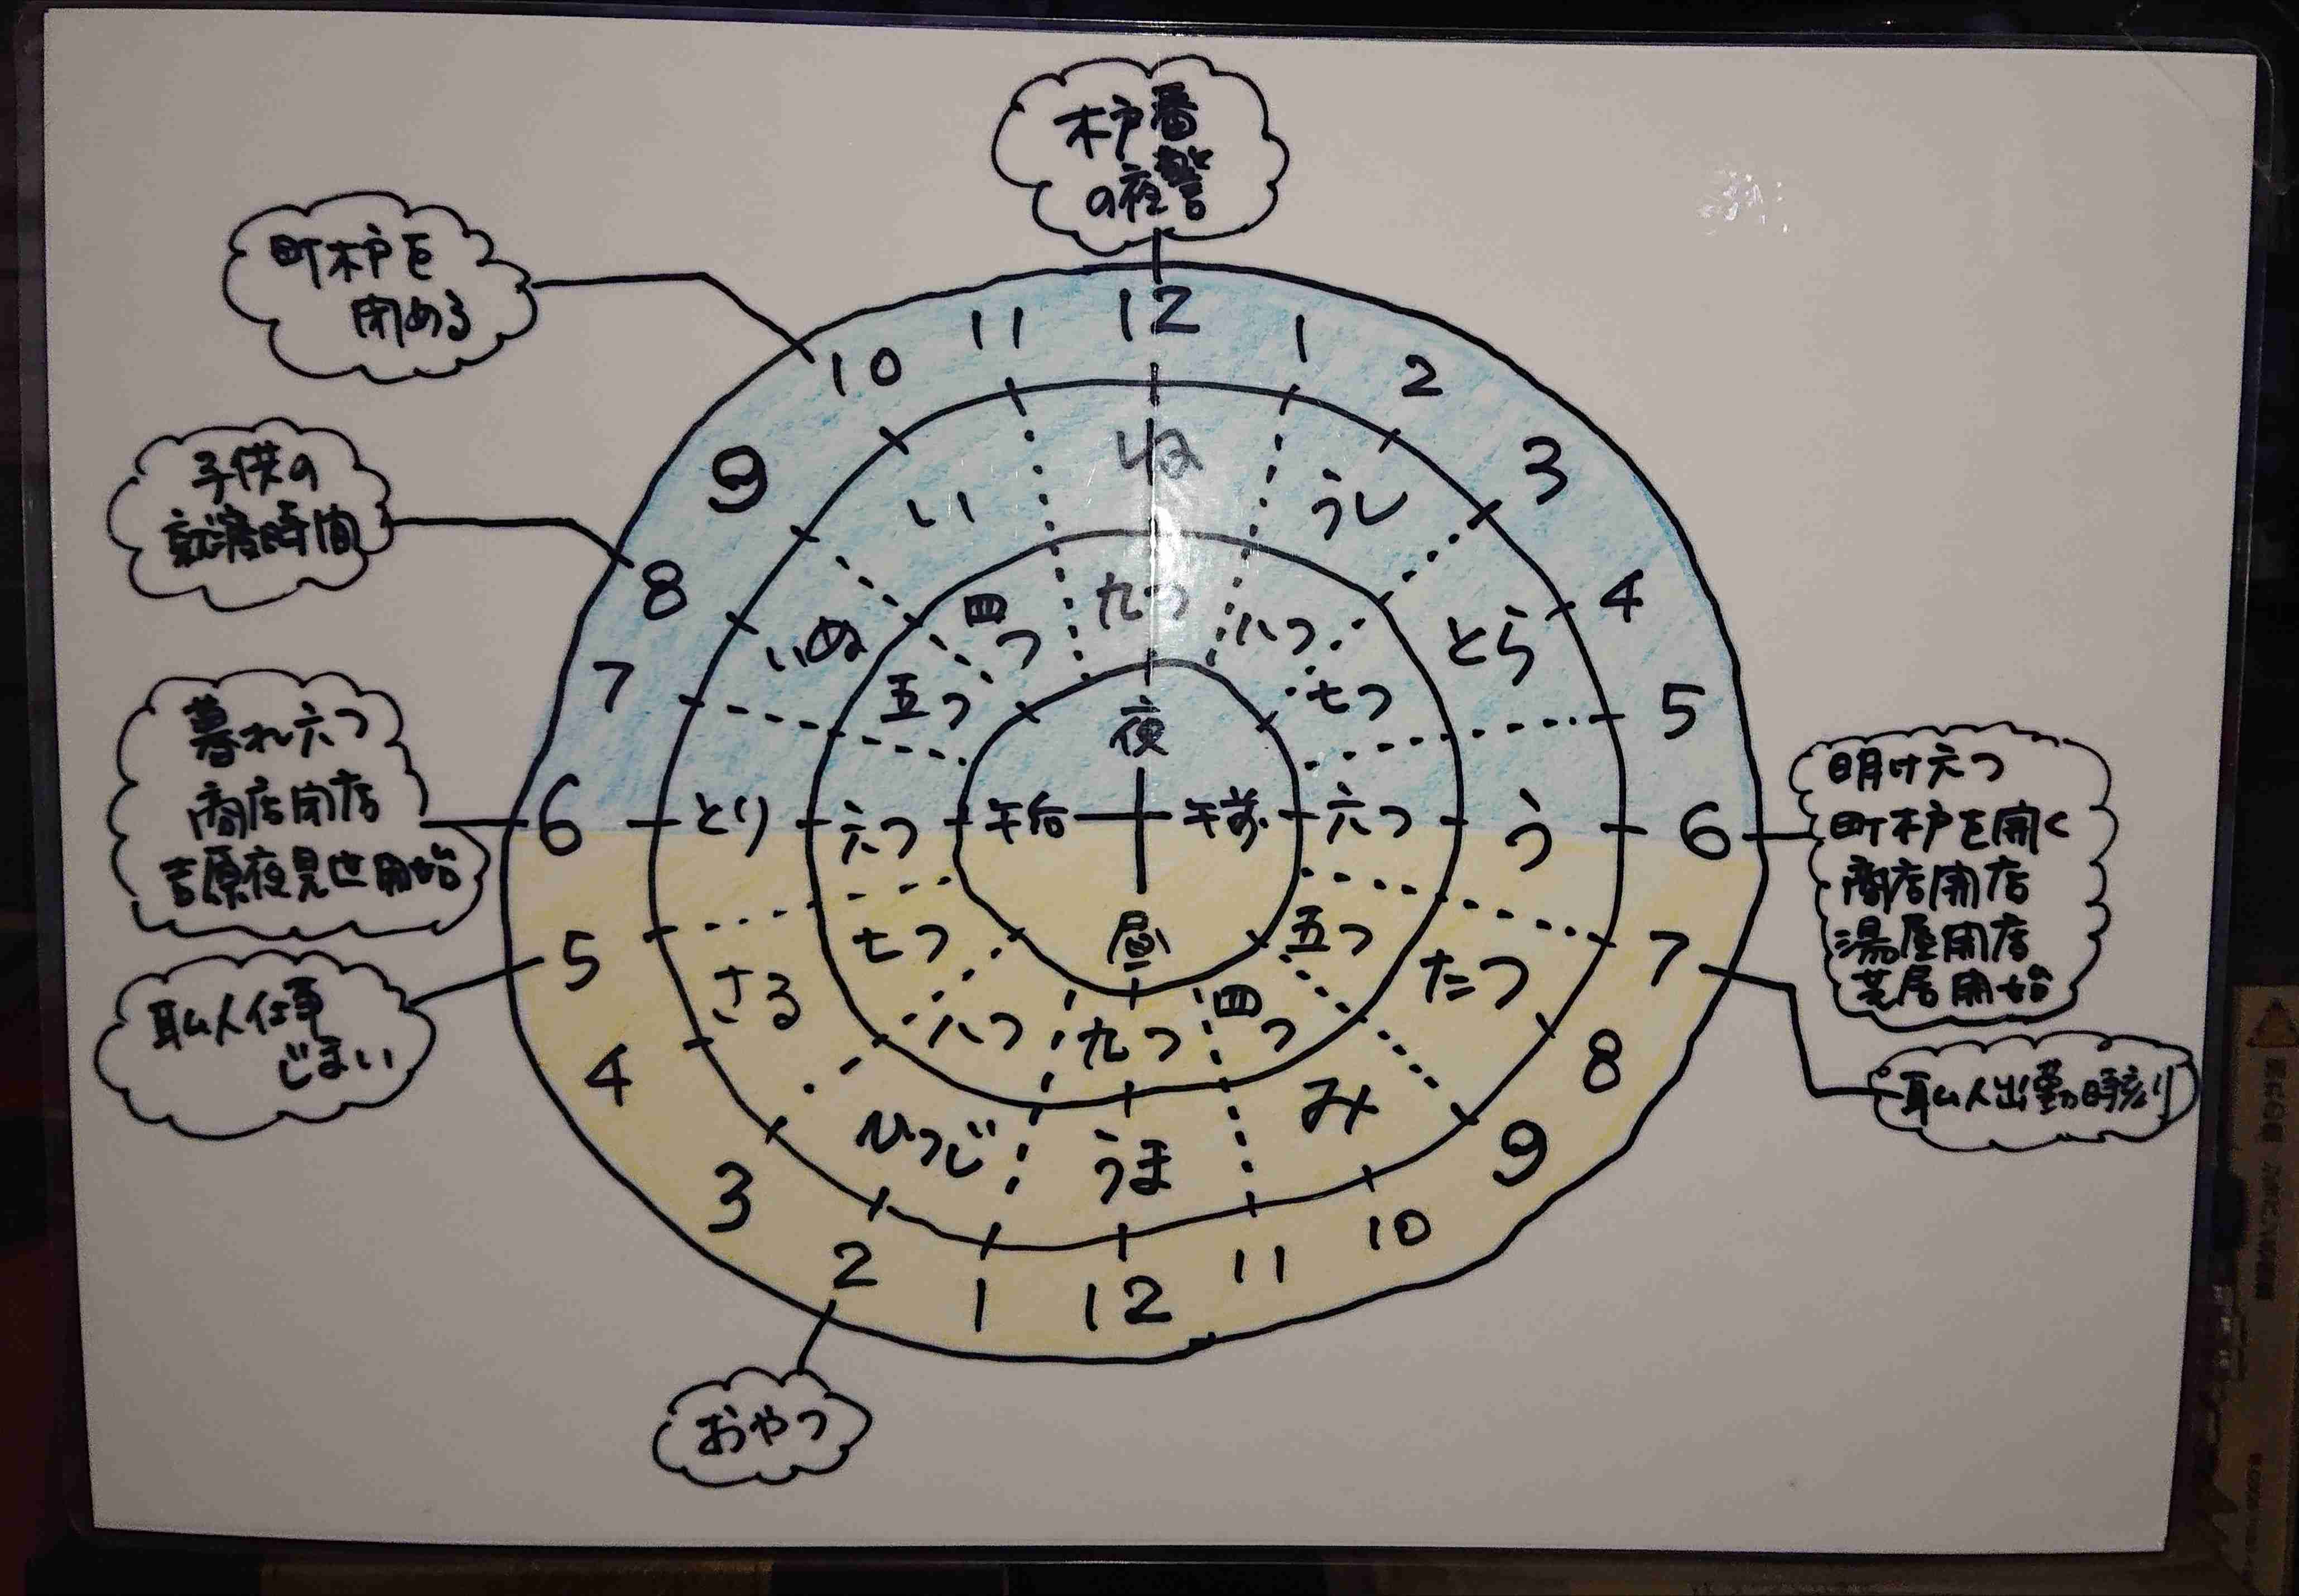 木戸番
の夜警
町木戸を
閉める
子供の
就寝時間
暮れ六つ
商店閉店
吉原夜見世開始
職人仕事
じまい
おやつ
明け六つ
町木戸を開く
商店開店
湯屋開店
芝居開始
職人出勤時刻
12
1
2
3
4
5
6
7
8
9
10
11
12
1
2
3
4
5
6
7
8
9
10
11
ね
うし
とら
う
たつ
み
うま
ひつじ
さる
とり
いぬ
い
九つ
八つ
七つ
六つ
五つ
四つ
九つ
八つ
七つ
六つ
五つ
四つ
夜
午後
午前
昼